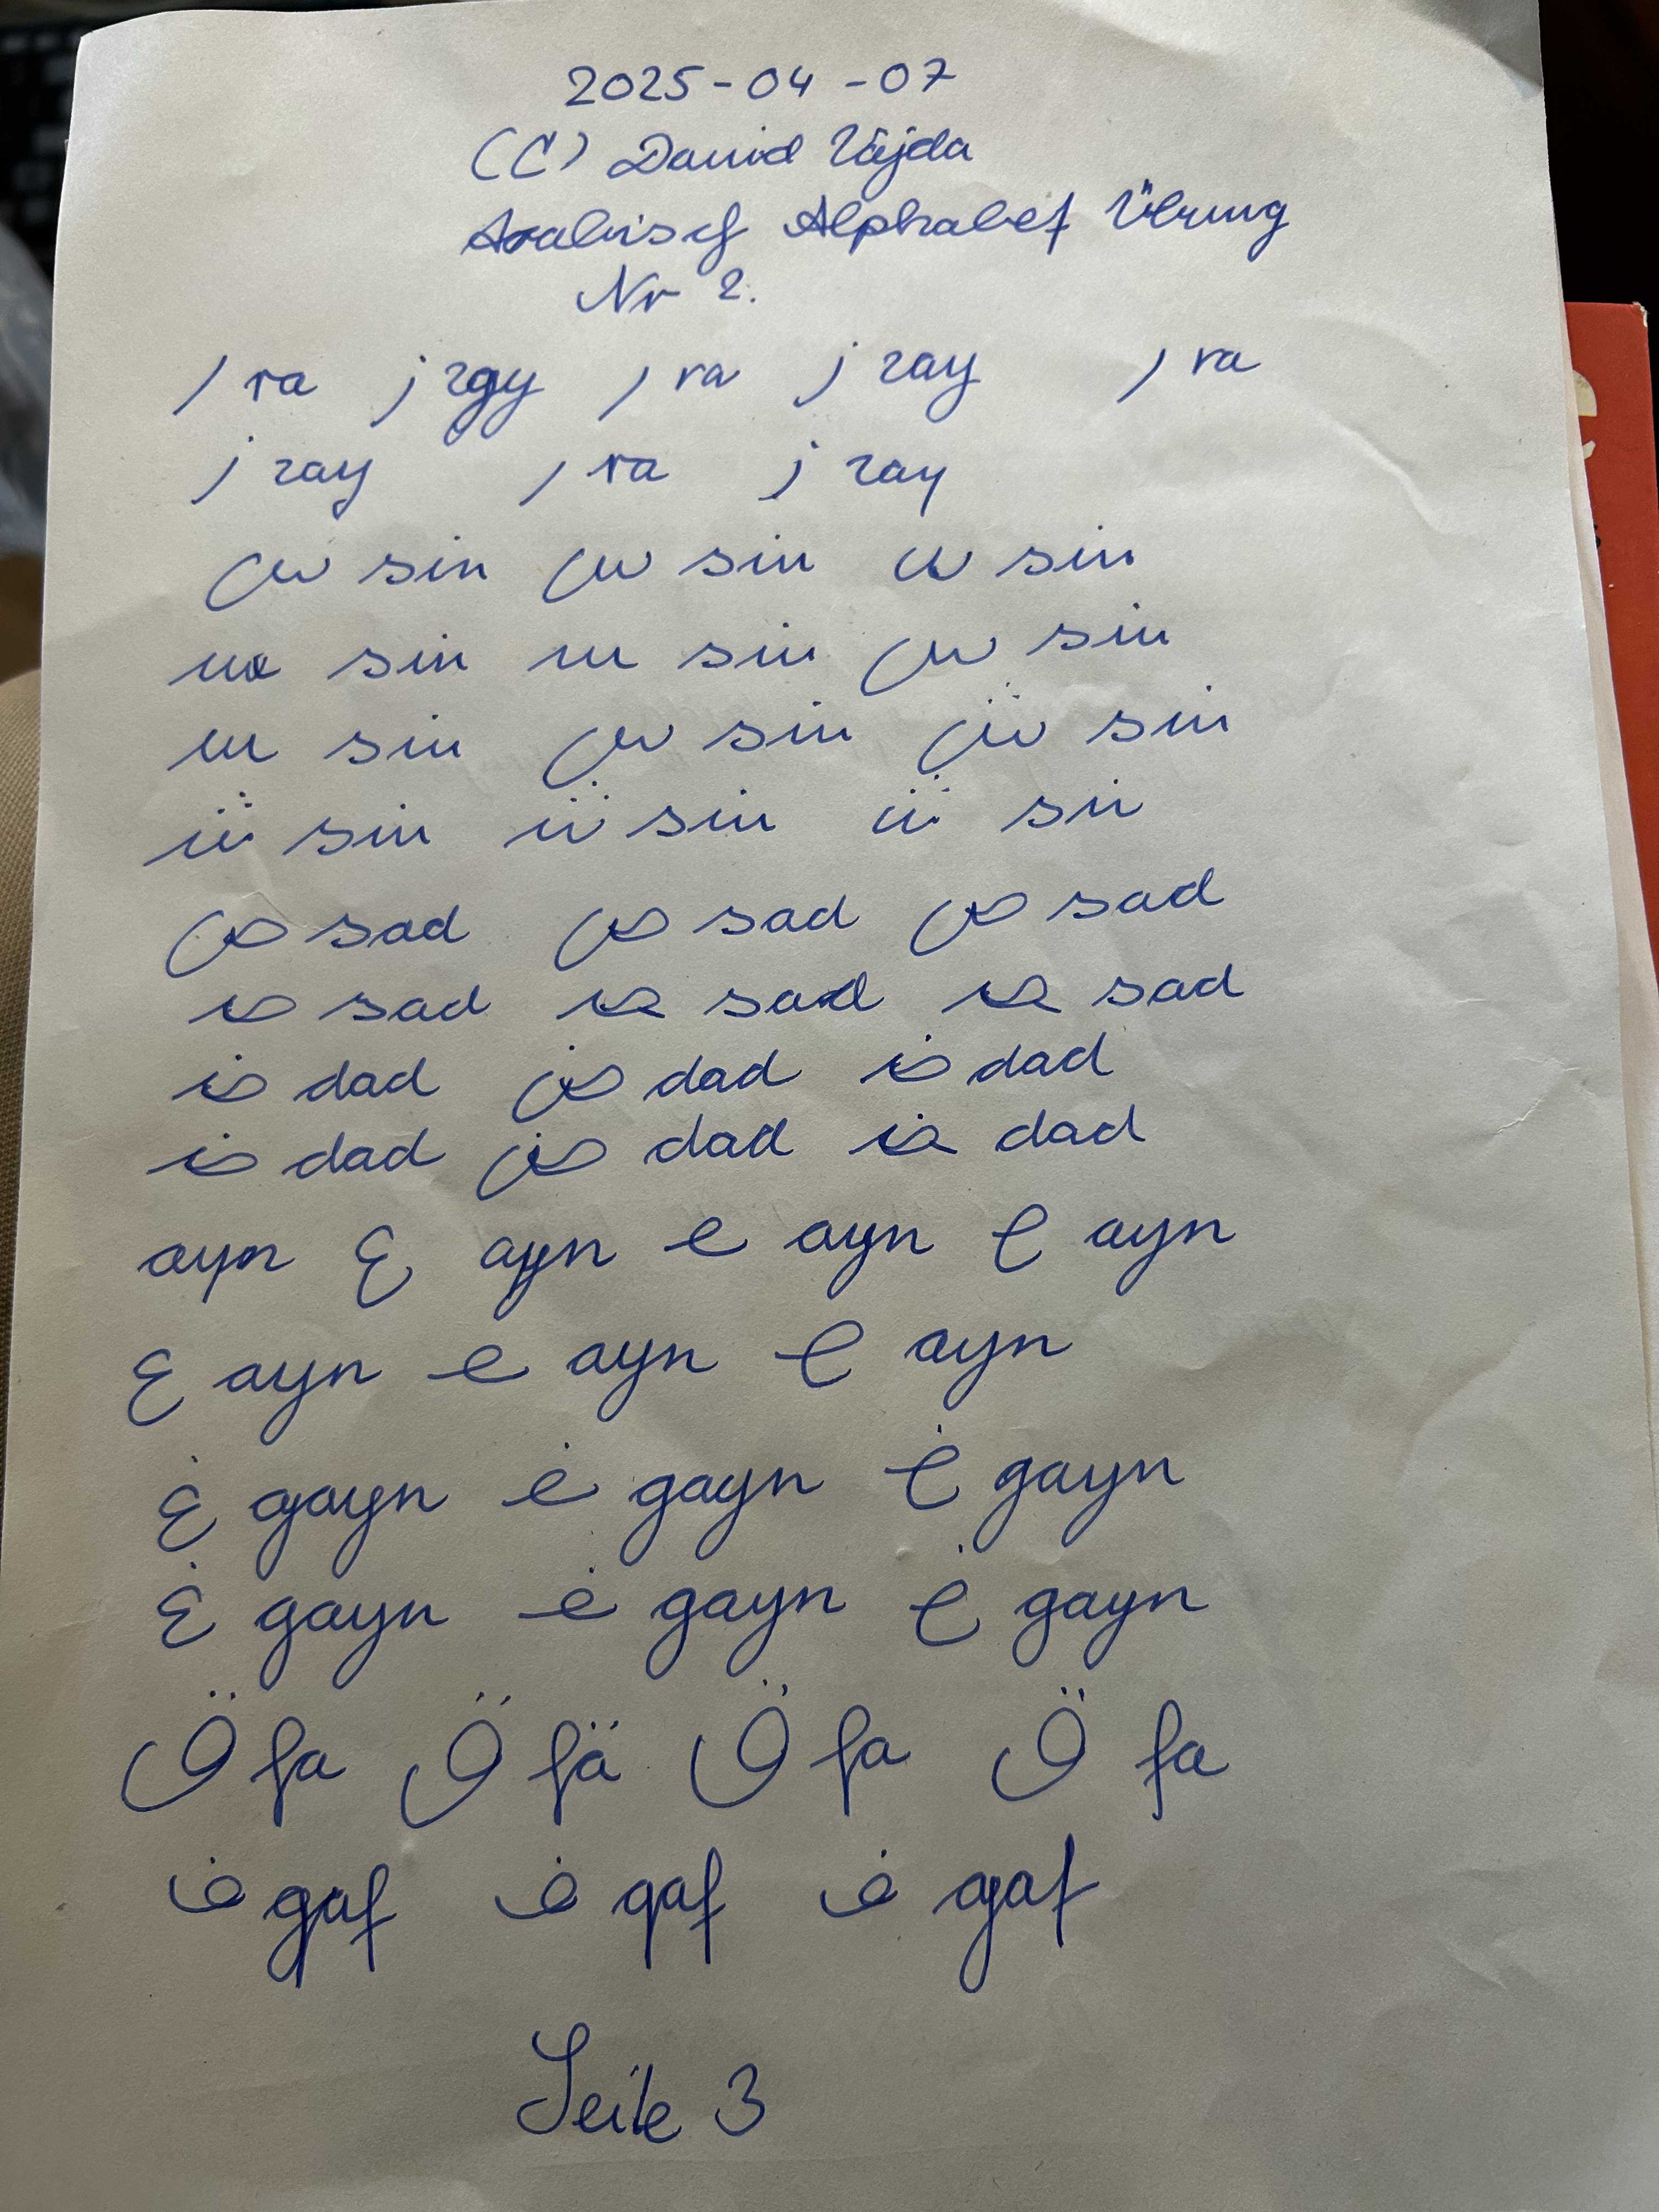 2025-04-07
(C) David Vajda
Arabisch Alphabet Übung
Nr 2.
ر ra ز zay ر ra ز zay ر ra
ز zay ر ra ز zay
س sin س sin سـ sin
ـسـ sin ـسـ sin س sin
ـسـ sin س sin ش sin
ـشـ sin ـشـ sin شـ sin
ص sad ص sad ص sad
صـ sad ـصـ sad ـصـ sad
ضـ dad ض dad ضـ dad
ضـ dad ض dad ـضـ dad
ayn ع ayn ـعـ ayn ـع ayn
ع ayn ـعـ ayn ـع ayn
غ gayn ـغـ gayn ـغ gayn
غ gayn ـغـ gayn ـغ gayn
ق fa ق fä ق fa ق fa
ف qaf ف qaf ف qaf
Seite 3